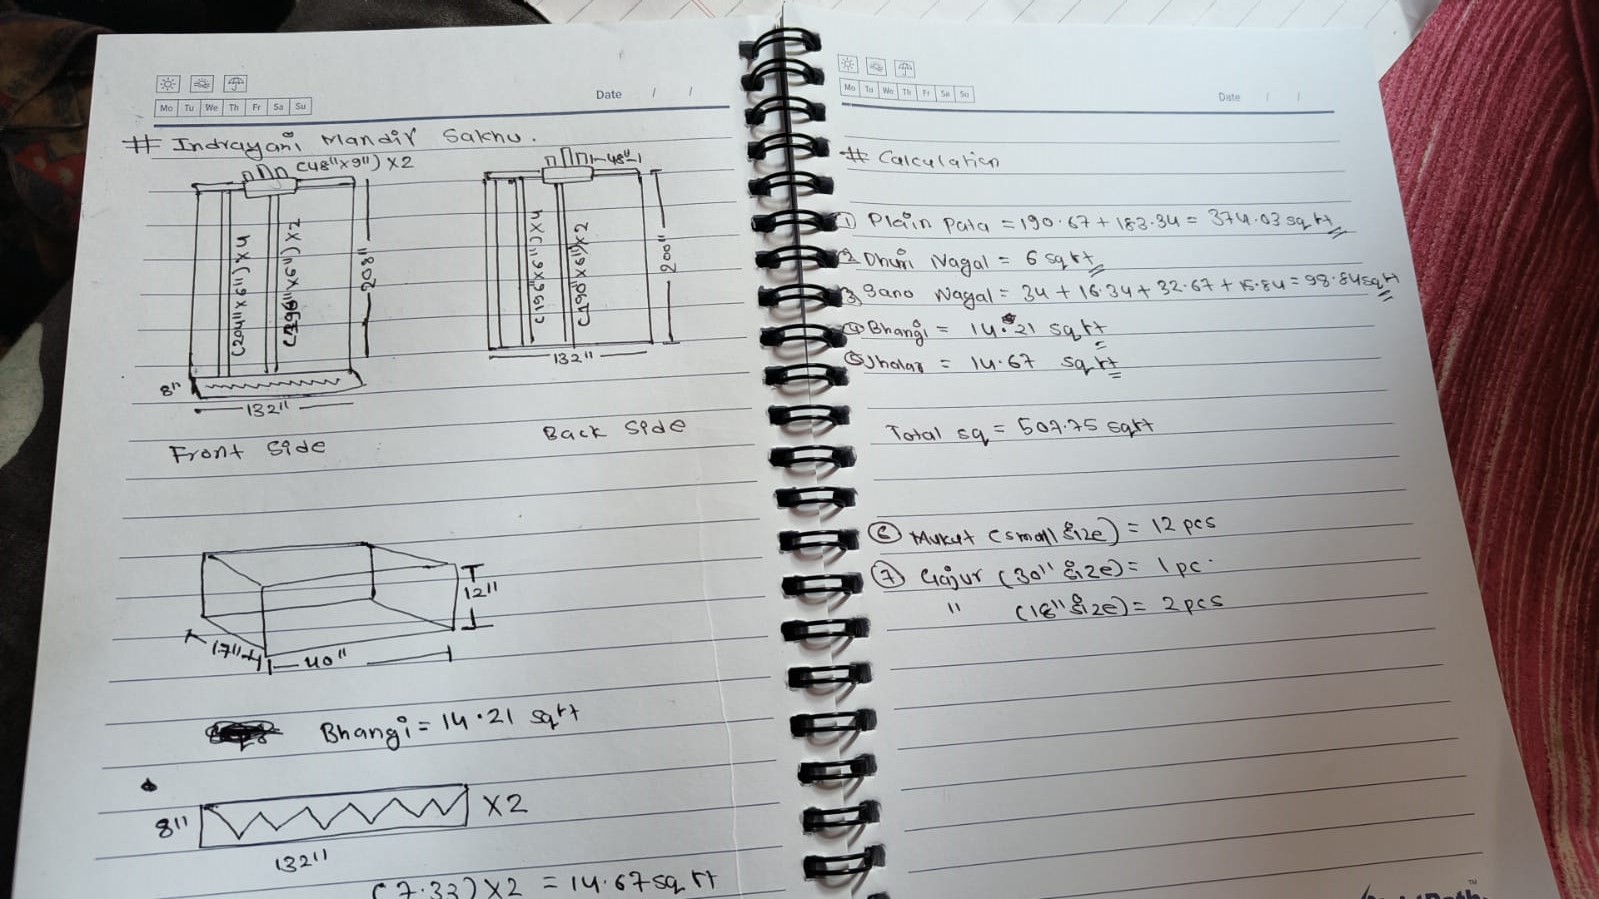 Mo Tu We Th Fr Sa Su
Date / /
# Indrayani Mandir Sakhu.
(48"x9") X2
(204"x6") X4
x6") X2
208"
8"
132"
Front Side
48"
(196"x6") X4
(190"x6") X2
200"
132"
Back Side
12"
17"
40"
Bhangi = 14.21 sqft
8"
X2
132"
(7.33) X2 = 14.67 sq ft
Mo Tu We Th Fr Sa Su
Date / /
# Calculation
① Plain Pata = 190.67 + 183.34 = 374.03 sq ft
② Dhuri Nagal = 6 sq ft
③ Sano Nagal = 34 + 16.34 + 32.67 + 15.84 = 98.84 sq ft
④ Bhangi = 14.21 sq ft
⑤ Jhalar = 14.67 sq ft
Total sq = 507.75 sqft
⑥ Mukut (small size) = 12 pcs
⑦ Gajur (30" size) = 1 pc.
" (18" size) = 2 pcs